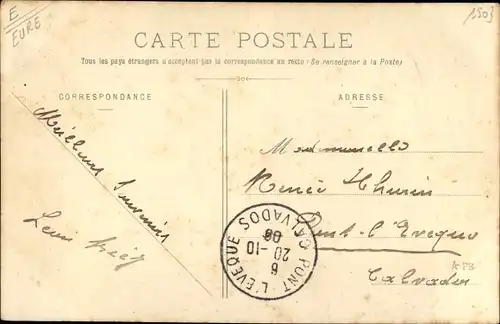 E
EURE
1503
CARTE POSTALE
Tous les pays étrangers n'acceptent pas la correspondance au recto (Se renseigner à la Poste)
CORRESPONDANCE
ADRESSE
Meilleurs Souvenirs
Mademoiselle
Renée Thurin
Pont-l'Evêque
Calvados
PONT-L'EVEQUE
CALVADOS
6
20-10
08